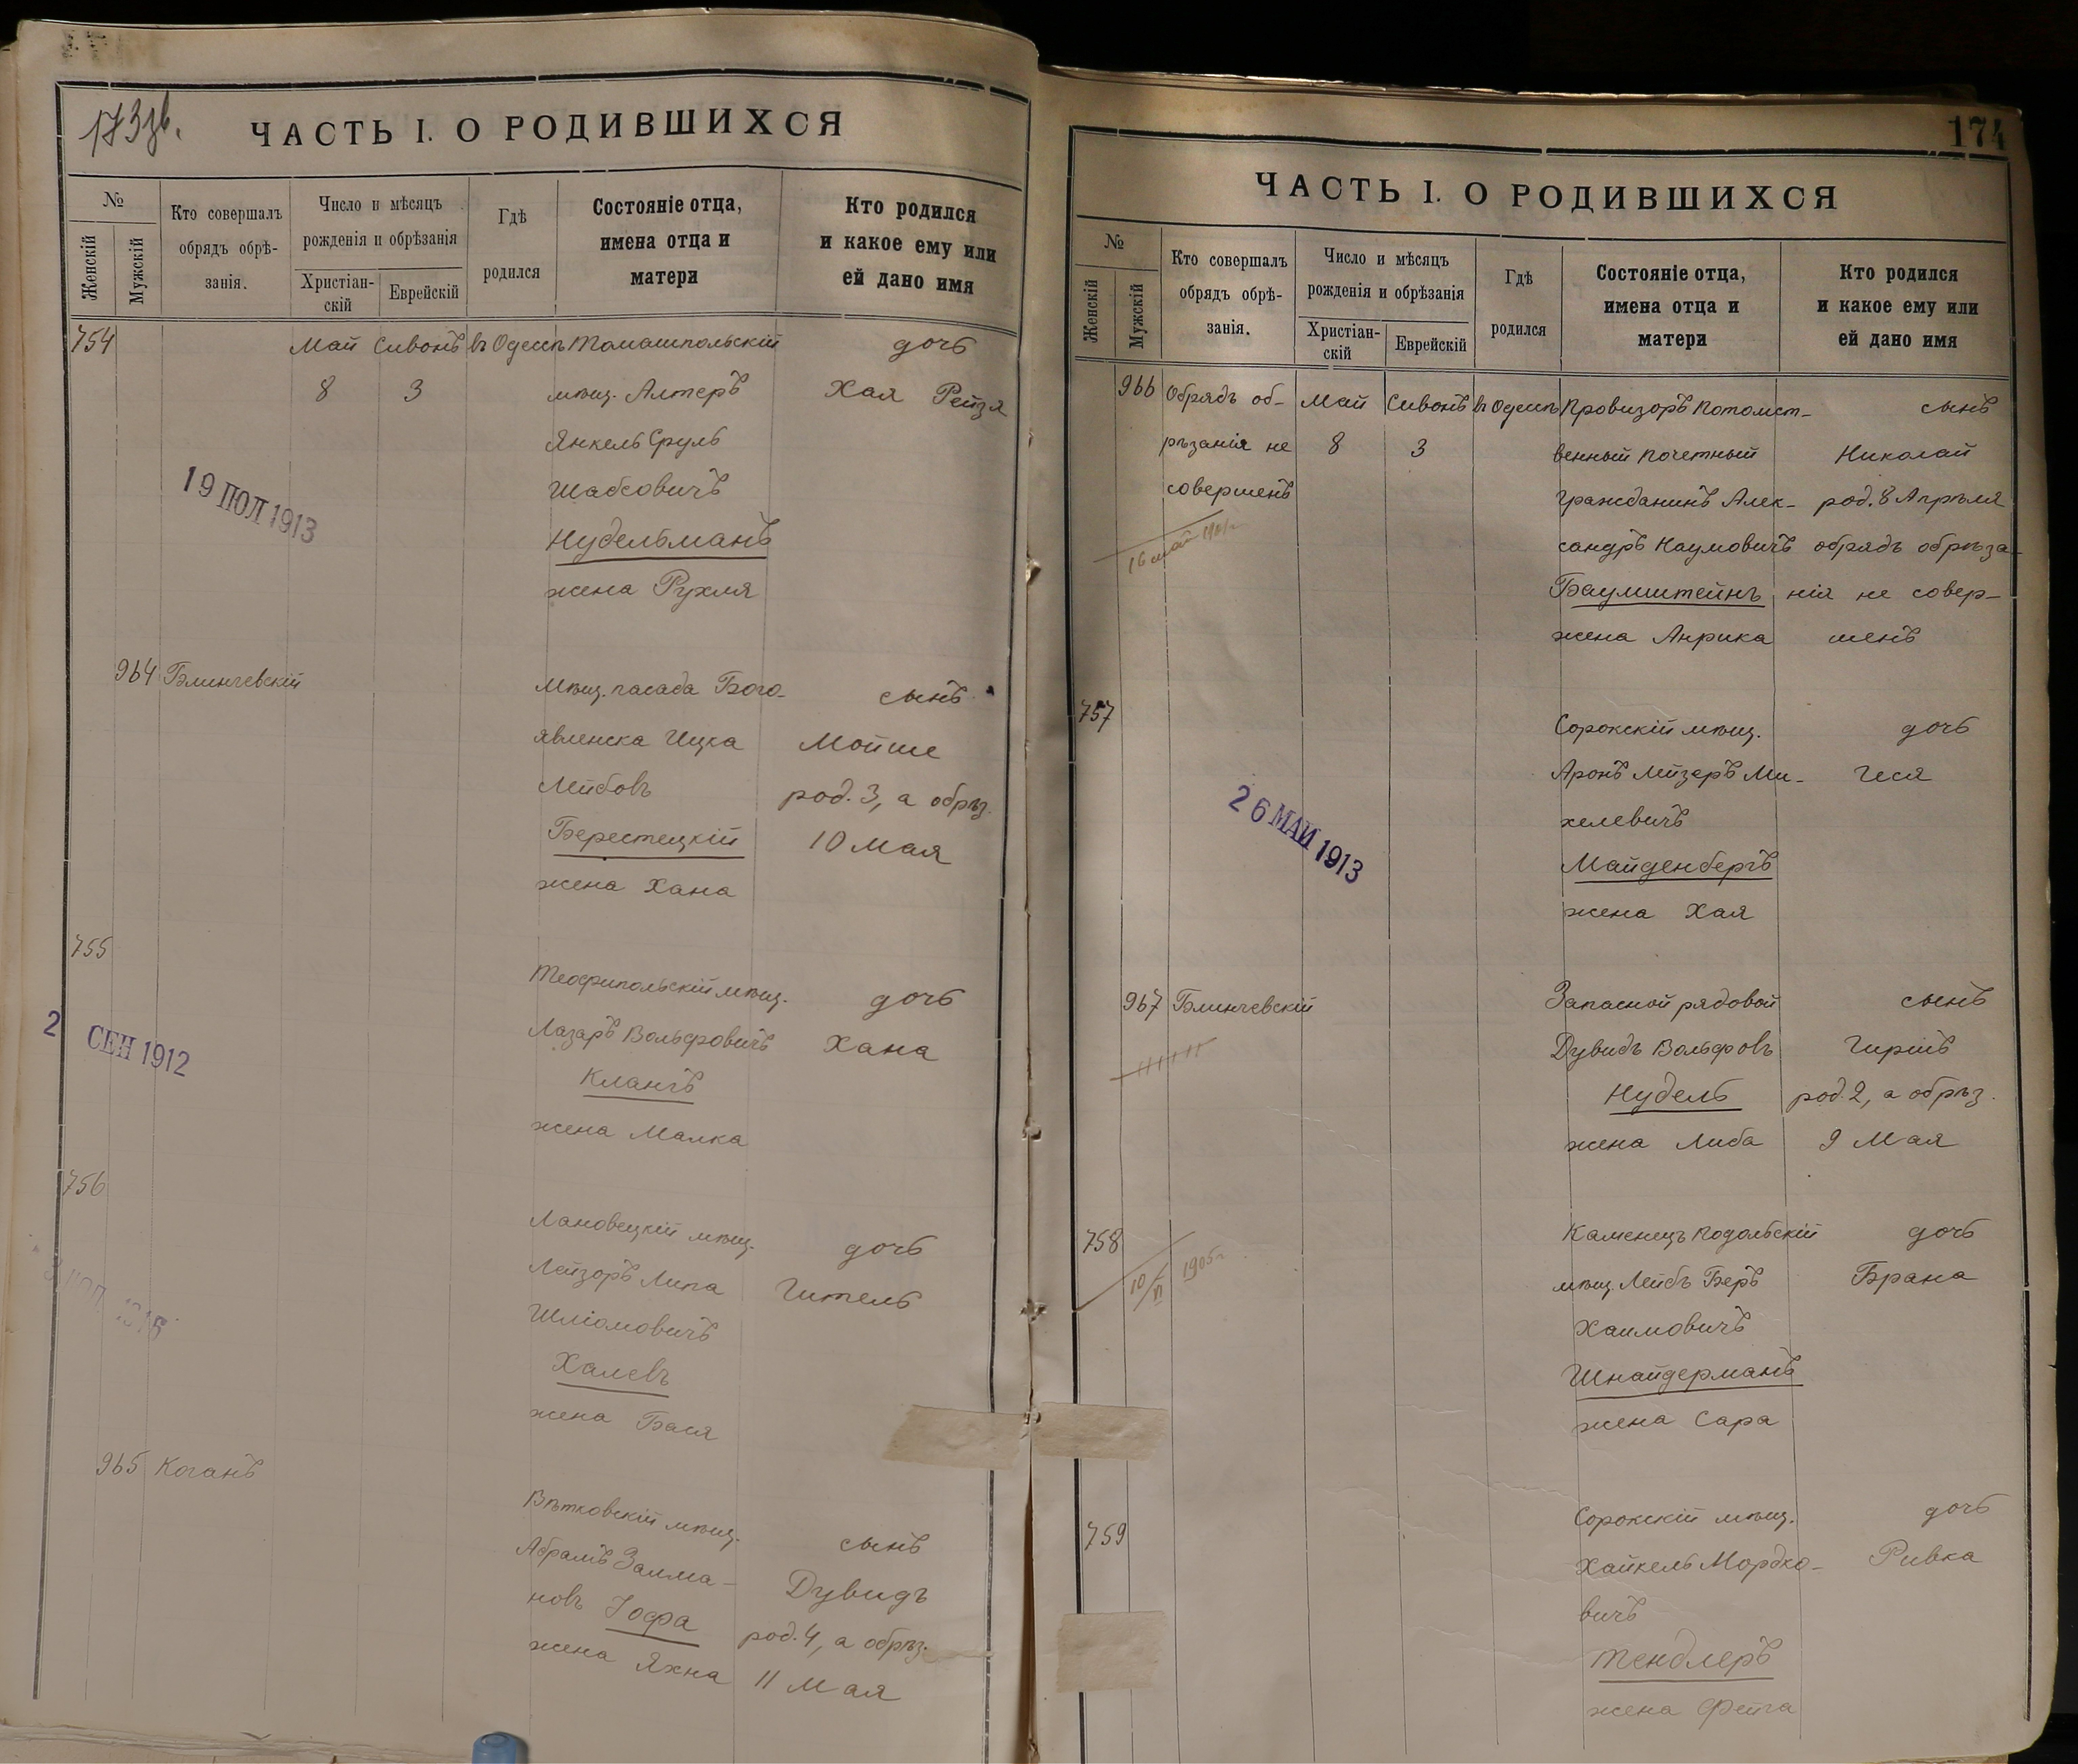 173зв.
ЧАСТЬ I. О РОДИВШИХСЯ
№
Женскій
Мужскій
Кто совершалъ
обрядъ обрѣ-
занія.
Число и мѣсяцъ
рожденія и обрѣзанія
Христіан-
скій
Еврейскій
Гдѣ
родился
Состояніе отца,
имена отца и
матери
Кто родился
и какое ему или
ей дано имя
754 Май Сивонъ въ Одессѣ Томашпольскій дочь
8 3 мѣщ. Алтеръ Хая Рейзя
Янкель Сруль
Шабсовичъ
19 ПОЛ 1913
Нудельманъ
жена Рухля
964 Блинчевскій Мѣщ. посада Бого- сынъ
явленска Ицка Мойше
Лейбовъ род. 3, а обрѣз.
Берестецкій 10 Мая
жена Хана
755 Теофипольскій мѣщ. дочь
Лазарь Вольфовичъ Хана
2 СЕН 1912
Клангъ
жена Малка
756 Лановецкій мѣщ. дочь
Лейзоръ Липа Гитель
Шліомовичъ
Халевъ
жена Бася
965 Коганъ Вѣтковскій мѣщ. сынъ
Абрамъ Залма- Дувидъ
новъ Іофа род. 4, а обрѣз.
жена Яхна 11 Мая
174
ЧАСТЬ I. О РОДИВШИХСЯ
№
Женскій
Мужскій
Кто совершалъ
обрядъ обрѣ-
занія.
Число и мѣсяцъ
рожденія и обрѣзанія
Христіан-
скій
Еврейскій
Гдѣ
родился
Состояніе отца,
имена отца и
матери
Кто родился
и какое ему или
ей дано имя
966 Обрядъ об- Май Сивонъ въ Одессѣ Провизоръ Потомст- сынъ
рѣзанія не 8 3 венный почетный Николай
совершенъ гражданинъ Алек- род. 8 Апрѣля
сандръ Наумовичъ обрядъ обрѣза-
Баумштейнъ нія не совер-
жена Анрика шенъ
757 Сорокскій мѣщ. дочь
Аронъ Лейзеръ Ми- Геся
хелевичъ
26 МАЙ 1913
Майденбергъ
жена Хая
967 Блинчевскій Запасной рядовой сынъ
Дувидъ Вольфовъ Гиршъ
Нудель род. 2, а обрѣз.
жена Либа 9 Мая
758 Каменецъ Подольскій дочь
10/VI 1905г. мѣщ. Лейбъ Беръ Брана
Хаимовичъ
Шнайдерманъ
жена Сара
759 Сорокскій мѣщ. дочь
Хайкель Мордко- Ривка
вичъ
Тендлеръ
жена Фейга